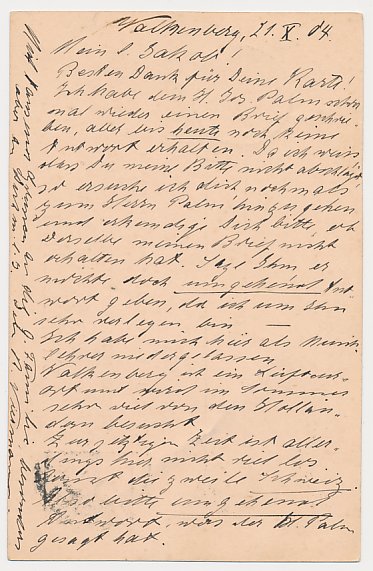 Valkenberg, 21. X. 04.
Mein l. Jakob!
Besten Dank für Deine Karte!
Ich habe dem H. Jos. Palm schon
mal wieder einen Brief geschrie-
ben, aber bis heute noch keine
Antwort erhalten. Da ich weiss
dass Du meine Bitte nicht abschlägst,
so ersuche ich dich nochmals
zum Herrn Palm hinzugehen
und erkundige Dich bitte, ob
derselbe meinen Brief nicht
erhalten hat. Sage ihm, er
möchte doch umgehend Ant
wort geben, da ich um
sehr verlegen bin —
Ich habe mich hier als Musik
lehrer niedergelassen
Valkenberg ist ein Luftcur-
ort und wird im Sommer
sehr viel von den Hollän-
dern besucht
Zur jetzigen Zeit ist aller-
dings hier nicht viel los
sonst die zweite Schweiz.
Also bitte umgehend
Antwort, was der H. Palm
gesagt hat.
an die l. Familie